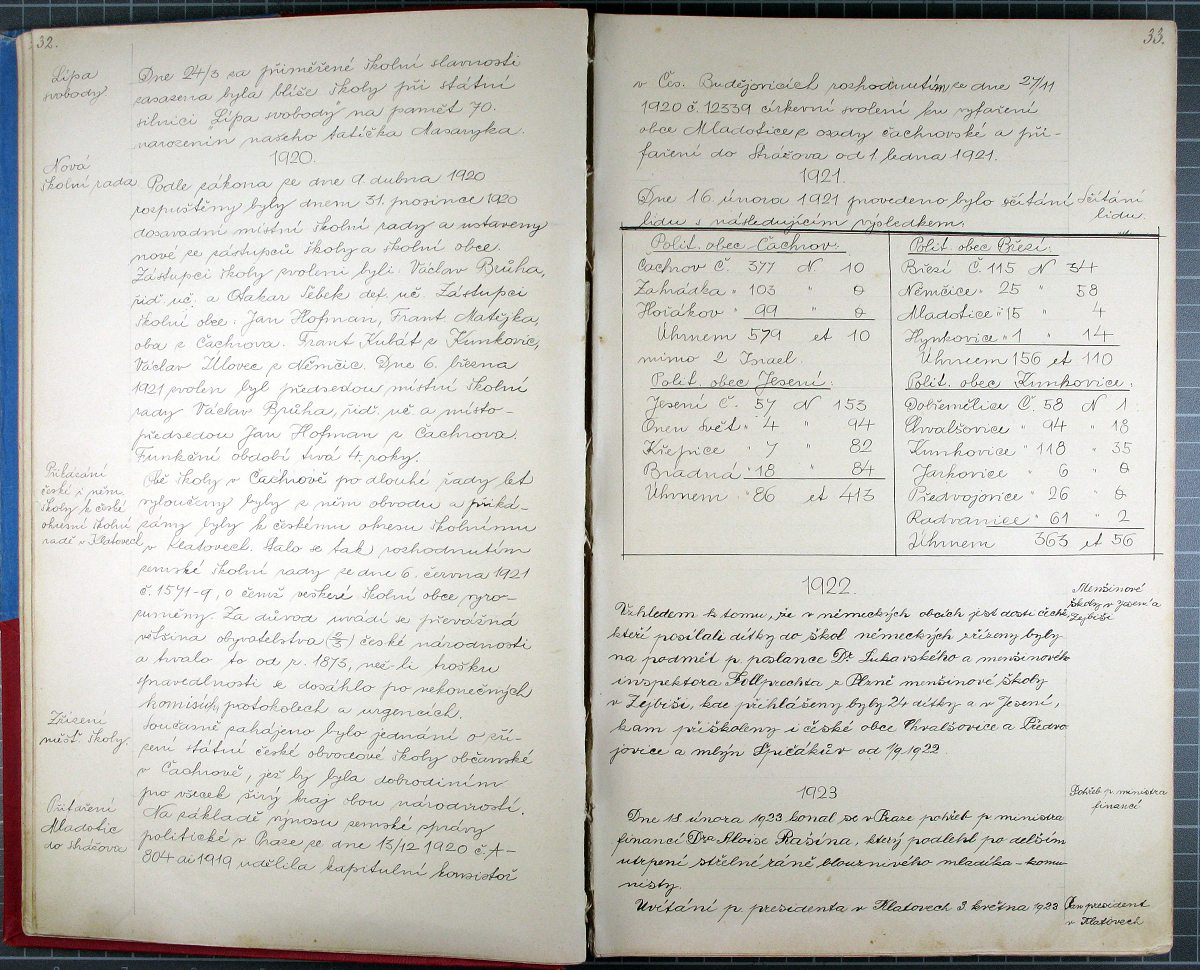 32.
Lípa
svobody.
Dne 24/3 za přiměřené školní slavnosti
zasazena byla blíže školy při státní
silnici „Lípa svobody" na paměť 70.
narozenin našeho tatíčka Masaryka.
1920.
Nová
školní rada.
Podle zákona ze dne 9. dubna 1920
rozpuštěny byly dnem 31. prosince 1920
dosavadní místní školní rady a ustaveny
nové ze zástupců školy a školní obce.
Zástupci školy zvoleni byli: Václav Brůha,
říd. uč. a Otakar Šebek def. uč. Zástupci
školní obce: Jan Hofman, Frant. Matějka,
oba z Čachrova. Frant Kubát z Kunkovic,
Václav Úlovec z Němčic. Dne 6. března
1921 zvolen byl předsedou místní školní
rady Václav Brůha, říd. uč a místo-
předsedou Jan Hofman z Čachrova.
Funkční období trvá 4. roky.
Přikázání
české i něm.
školy k české
okresní školní
radě v Klatovech
Obě školy v Čachrově po dlouhé řady let
vyloučeny byly z něm obvodu a přiká-
zány byly k českému okresu školnímu
v Klatovech. Stalo se tak rozhodnutím
zemské školní rady ze dne 6. června 1921
č. 1571-9, o čemž veškeré školní obce vyro-
zuměny. Za důvod uvádí se převážná
většina obyvatelstva (2/3) české národnosti
a trvalo to od r. 1873, než-li trošku
spravedlnosti se dosáhlo po nekonečných
komisích, protokolech a urgencích.
Zřízení
měšť. školy.
Současně zahájeno bylo jednání o zří-
zení státní české obvodové školy občanské
v Čachrově, jež by byla dobrodiním
pro všecek širý kraj obou národností.
Přifaření
Mladotic
do Strážova
Na základě výnosu zemské správy
politické v Praze ze dne 13/12 1920 č. A-
804 ai 1919, udělila kapitulní konsistoř
33.
v Čes. Budějovicích rozhodnutím ze dne 27/11
1920 č. 12339 církevní svolení ku vyfaření
obce Mladotice z osady čachrovské a při-
faření do Strážova od 1. ledna 1921.
1921.
Dne 16. února 1921 provedeno bylo sčítání
lidu s následujícím výsledkem:
Sčítání
lidu.
Polit. obec Čachrov:
Čachrov Č. 377 N. 10
Zahrádka " 103 " 0
Hořákov " 99 " 0
Úhrnem 579 et 10
mimo 2 Israel.
Polit. obec Jesení:
Jesení Č. 57 N 153
Onen Svět " 4 " 94
Křepice " 7 " 82
Bradná " 18 " 84
Úhrnem " 86 et 413
Polit obec Březí:
Březí Č. 115 N 34
Němčice " 25 " 58
Mladotice " 15 " 4
Hynkovice " 1 " 14
Úhrnem 156 et 110
Polit. obec Kunkovice:
Dobřemělice Č. 58 N 1
Chvalšovice " 94 " 18
Kunkovice " 118 " 35
Jarkovice " 6 " 0
Předvojovice " 26 " 0
Radvanice " 61 " 2
Úhrnem 363 et 56
1922.
Menšinové
školy v Jesení a
Zejbiši
Vzhledem k tomu, že v německých obcích jest dosti čechů,
kteří posílali dítky do škol německých zřízeny byly
na podmět p. poslance Dr. Lukavského a menšinového
inspektora Follprechta z Plzně menšinové školy
v Zejbiši, kde přihlášeny byly 24 dítky a v Jesení,
kam přiškoleny i české obce Chvalšovice a Předvo
jovice a mlýn Špičákův od 1/9 1922
1923
Pohřeb p. ministra
financí
Dne 18. února 1923 konal se v Praze pohřeb p. ministra
financí Dra Aloise Rašína, který podlehl po delším
utrpení střelné ráně blouznivého mladíka-komu
nisty.
Uvítání p. presidenta v Klatovech 3. května 1923
Pan president
v Klatovech